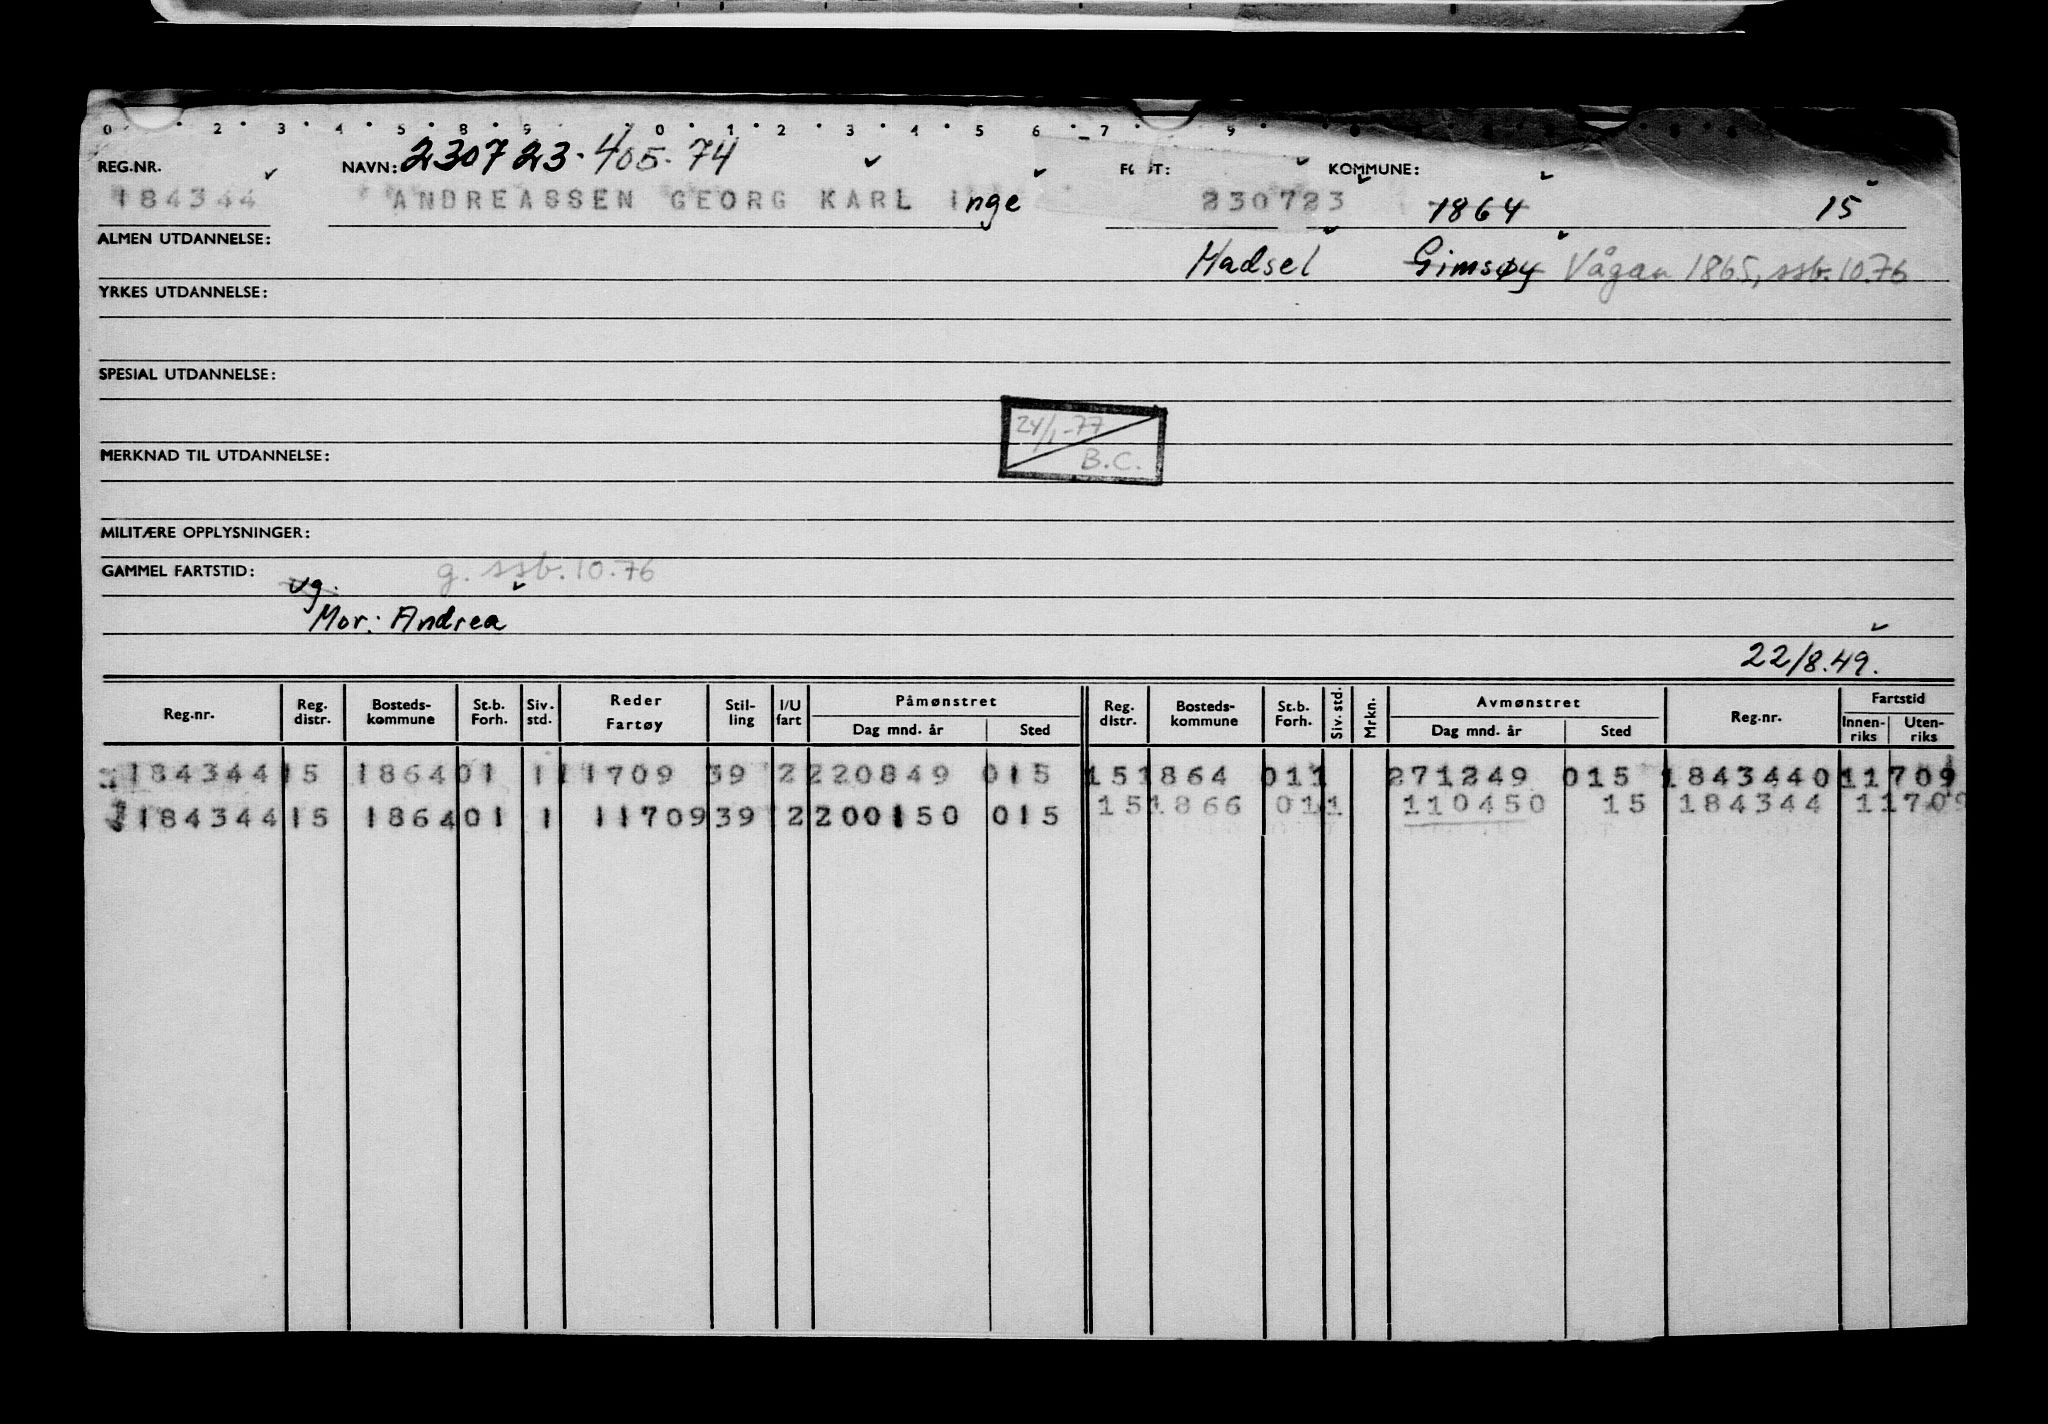 0 2 3 4 5 8 9 0 1 2 3 4 5 6 7 9
REG.NR. NAVN: 230723.405.74 KOMMUNE:
184344 ANDREASSEN GEORG KARL Inge 230723 1864 15
ALMEN UTDANNELSE: Hadsel Gimsøy Vågan 1865, ssb.10.76
YRKES UTDANNELSE:
SPESIAL UTDANNELSE:
24/1-77
B.C.
MERKNAD TIL UTDANNELSE:
MILITÆRE OPPLYSNINGER:
GAMMEL FARTSTID: g. ssb.10.76
vg.
Mor: Andrea
22/8.49.
Reg.nr. Reg. distr. Bosteds-kommune St.b. Forh. Siv. std. Reder Fartøy Stil-ling I/U fart Påmønstret Dag mnd. år Sted Reg. distr. Bosteds-kommune St.b. Forh. Siv. std. Mrkn. Avmønstret Dag mnd. år Sted Reg.nr. Fartstid Innen-riks Uten-riks
184344 15 1864 01 1 11709 39 2 220849 015 15 1864 01 1 271249 015 184344 011709
184344 15 1864 01 1 11709 39 2 200150 015 15 1866 01 1 110450 15 184344 11709